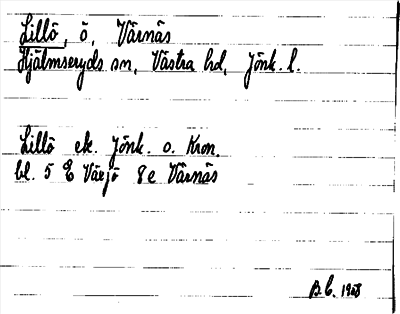 Lillö, ö, Värnäs
Hjälmseryds sn, Västra hd, Jönk. l.
Lillö ek. Jönk. o. Kron.
bl. 5 E Växjö 8e Värnäs
B.C. 1968